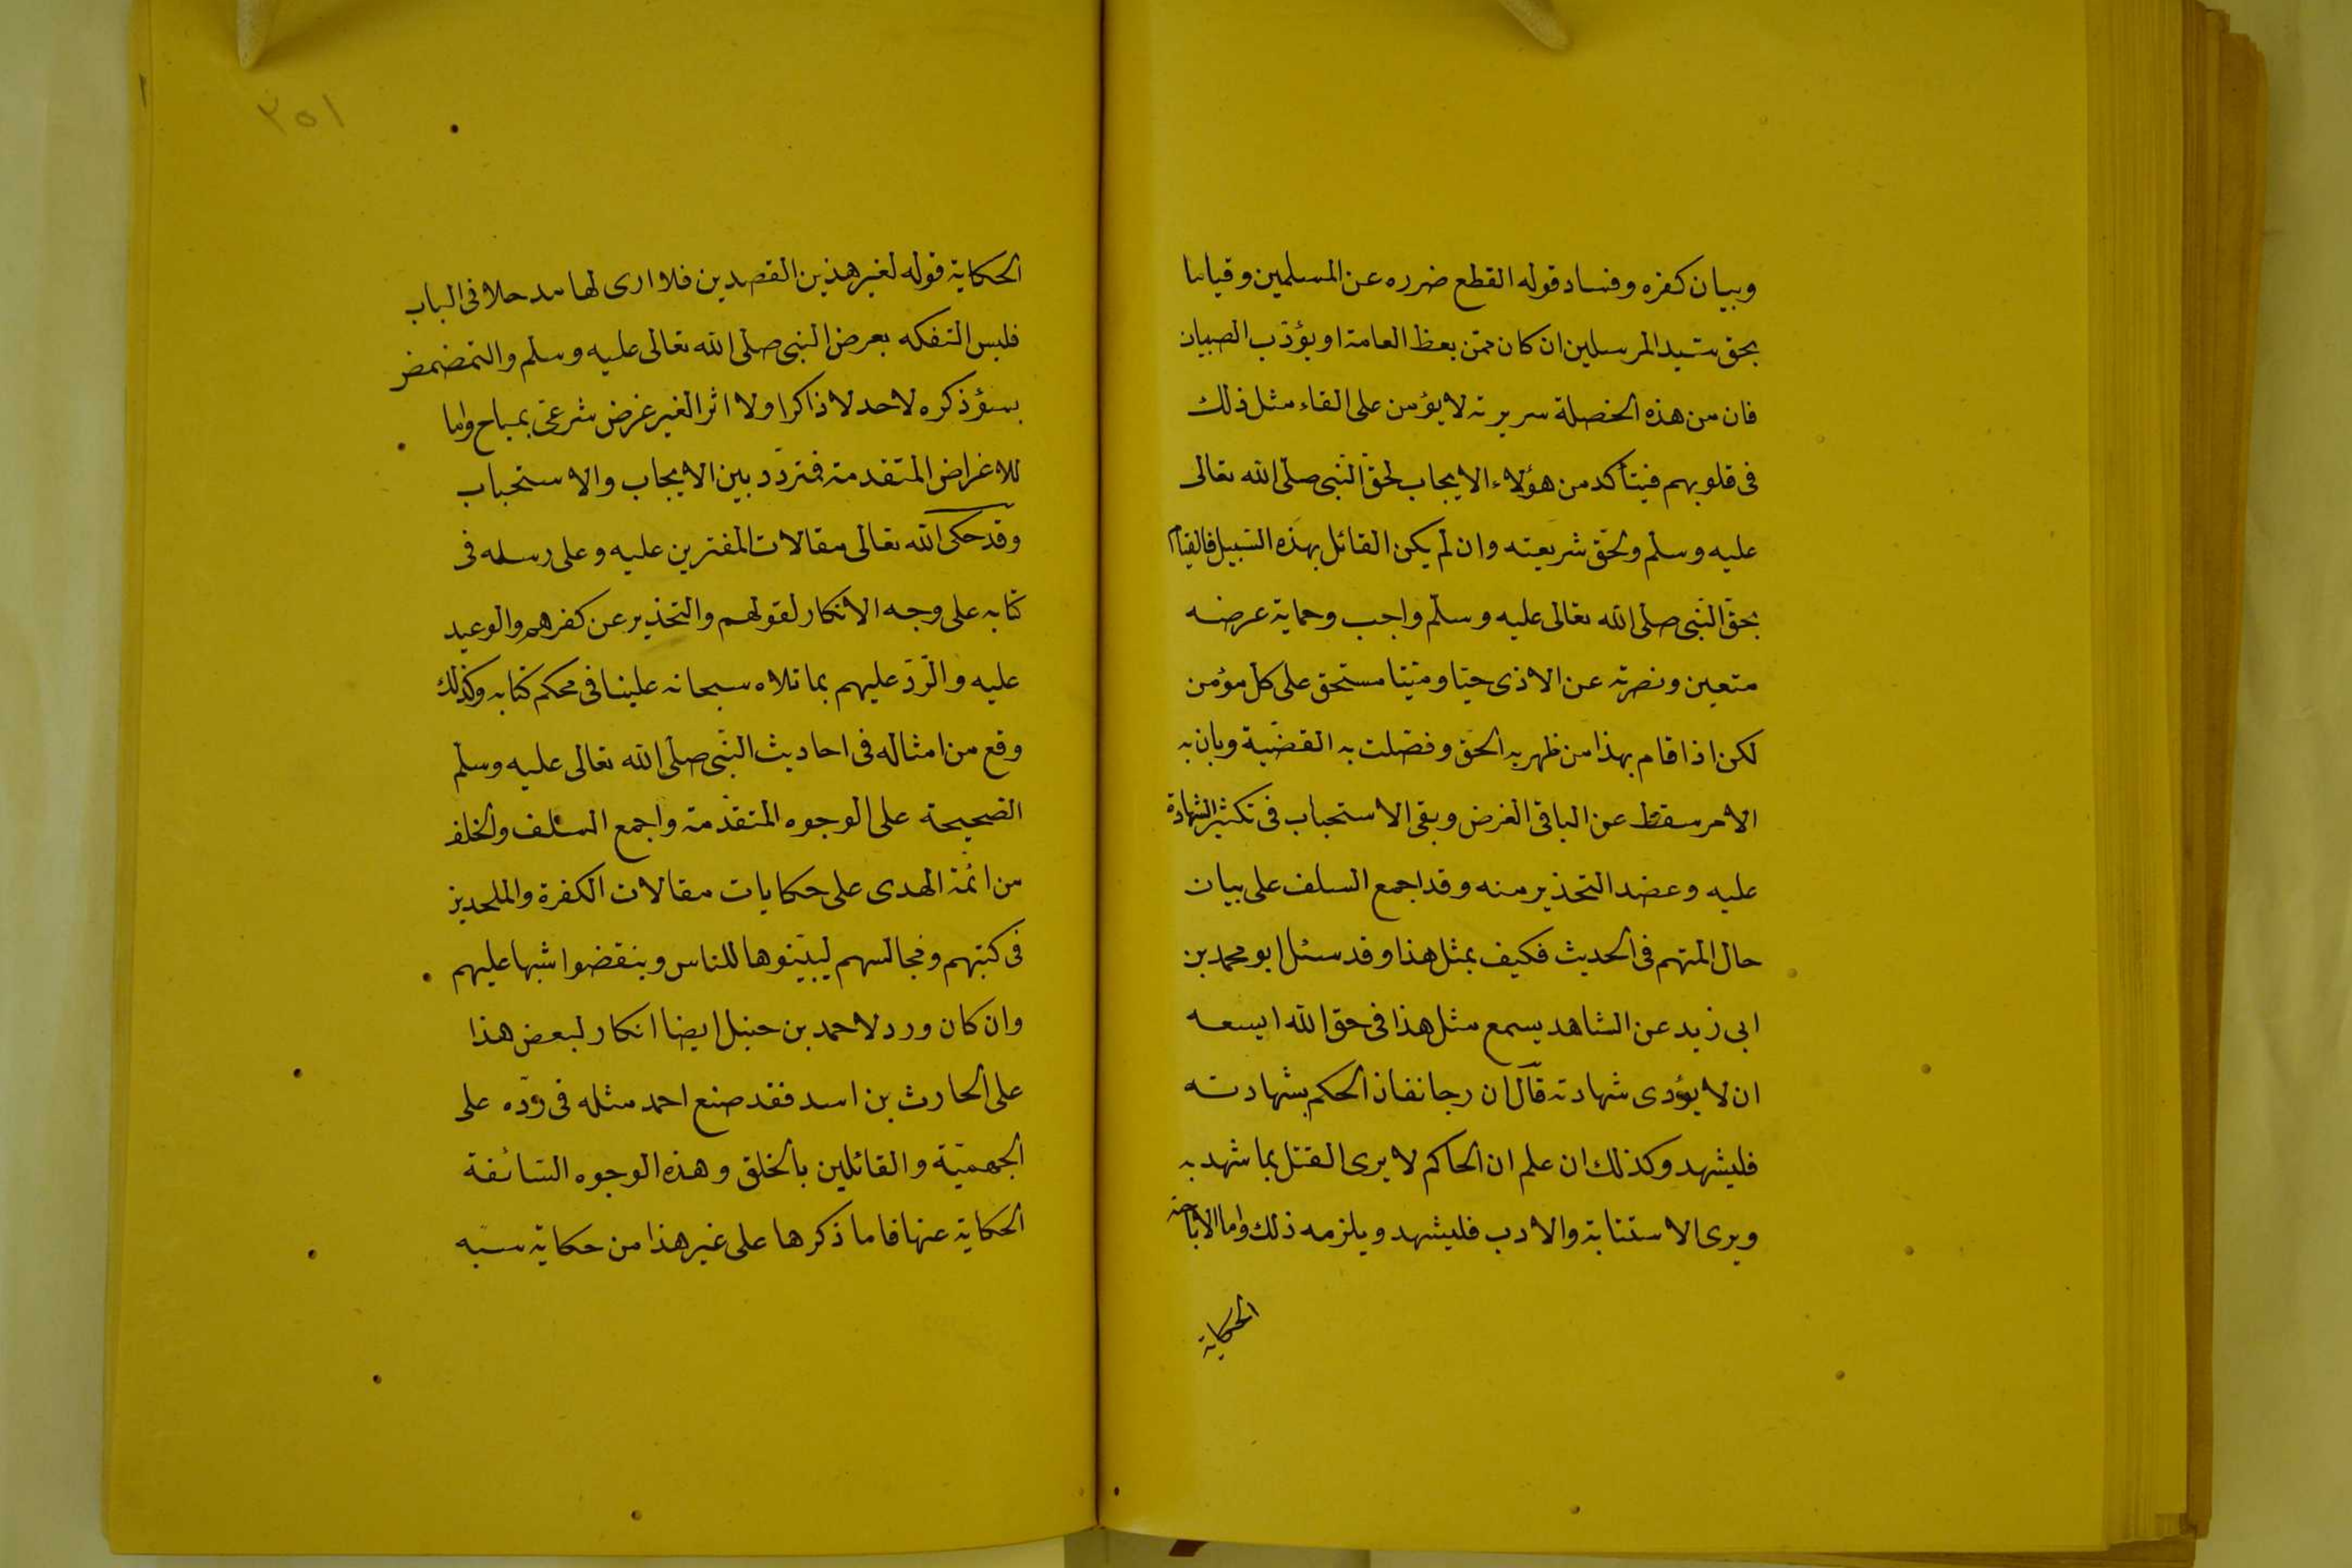 وبيان كفره وفساد قوله القطع ضرره عن المسلمين وقياما
بحق سيد المرسلين ان كان ممن يعظ العامة او يؤدب الصبيان
فان من هذه الخصلة سريرته لا يؤمن على القاء مثل ذلك
فى قلوبهم فيتأكد من هؤلاء الايجاب لحق النبى صلى الله تعالى
عليه وسلم ولحق شريعته وان لم يكن القائل بهذه السبيل فالقيام
بحق النبى صلى الله تعالى عليه وسلم واجب وحماية عرضه
متعين ونصرته عن الاذى حيا وميتا مستحق على كل مؤمن
لكن اذا قام بهذا من ظهر به الحق وفصلت به القضية وبان به
الامر سقط عن الباقى الغرض وبقى الاستحباب فى تكثير الشهادة
عليه وعضد التحذير منه وقد اجمع السلف على بيان
حال المتهم فى الحديث فكيف بمثل هذا وقد سئل ابو محمد بن
ابى زيد عن الشاهد يسمع مثل هذا فى حق الله ايسعه
ان لا يؤدى شهادته قال ان رجا نفاذ الحكم بشهادته
فليشهد وكذلك ان علم ان الحاكم لا يرى القتل بما شهد به
ويرى الاستتابة والادب فليشهد ويلزمه ذلك واما الاباحة
الحكاية
٢٥١
الحكاية قوله لغير هذين القصدين فلا ارى لها مدخلا فى الباب
فليس التفكه بعرض النبى صلى الله تعالى عليه وسلم والتمضمض
بسؤ ذكره لاحد لا ذاكرا ولا اثرا لغير غرض شرعى بمباح واما
للاغراض المتقدمة فمتردد بين الايجاب والاستحباب
وقد حكى الله تعالى مقالات المفترين عليه وعلى رسله فى
كتابه على وجه الانكار لقولهم والتحذير عن كفرهم والوعيد
عليه والرد عليهم بما تلاه سبحانه علينا فى محكم كتابه وكذلك
وقع من امثاله فى احاديث النبى صلى الله تعالى عليه وسلم
الصحيحة على الوجوه المتقدمة واجمع السلف والخلف
من ائمة الهدى على حكايات مقالات الكفرة والملحدين
فى كتبهم ومجالسهم ليبينوها للناس وينقضوا شبها عليهم
وان كان ورد لاحمد بن حنبل ايضا انكار لبعض هذا
على الحارث بن اسد فقد صنع احمد مثله فى رده على
الجهمية والقائلين بالخلق وهذه الوجوه السائغة
الحكاية عنها فاما ذكرها على غير هذا من حكاية سبه